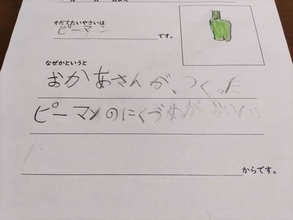 そだてたいやさいは
ピーマン です。
なぜかというと
おかあさんが、つくった
ピーマンのにくづめが
からです。